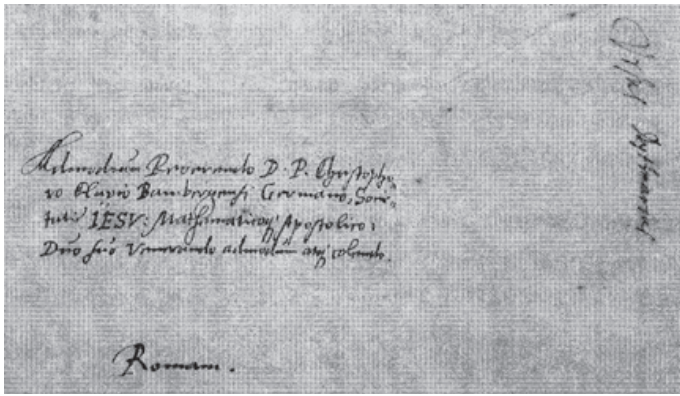 Admodum Reverendo D. P. Christopho-
ro Clavio Bambergensi Germano, Socie-
tatis IESV: Mathematicoq; Apostolico:
Dno suo Venerando admodum atq; colendo.
Romam.